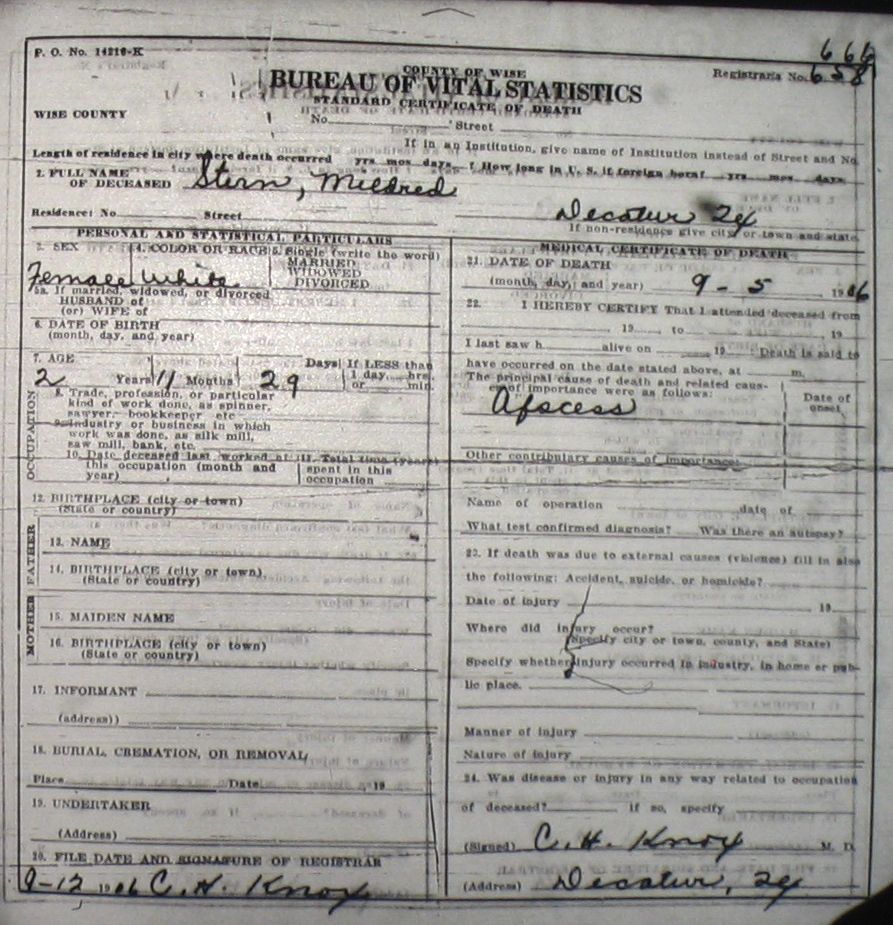 P. O. No. 14216-K
666
COUNTY OF WISE
Registrars No. 658
BUREAU OF VITAL STATISTICS
STANDARD CERTIFICATE OF DEATH
WISE COUNTY
No. Street
If in an Institution, give name of Institution instead of Street and No.
Length of residence in city where death occurred yrs mos days ? How long in U. S. if foreign born? yrs mos days
2. FULL NAME OF DECEASED Stern, Mildred
Residence: No Street Decatur
If non-residence give city or town and state
PERSONAL AND STATISTICAL PARTICULARS
3. SEX 4. COLOR OR RACE 5. Single (write the word)
MARRIED
WIDOWED
DIVORCED
Female White
5a. If married, widowed, or divorced
HUSBAND of
(or) WIFE of
6. DATE OF BIRTH
(month, day, and year)
7. AGE
2 Years 11 Months 29 Days If LESS than
1 day hrs.
or min
OCCUPATION
8. Trade, profession, or particular
kind of work done, as spinner,
sawyer, bookkeeper etc
9. Industry or business in which
work was done, as silk mill,
saw mill, bank, etc.
10. Date deceased last worked at
this occupation (month and
year)
11. Total time (years)
spent in this
occupation
12. BIRTHPLACE (city or town)
(State or country)
FATHER
13. NAME
14. BIRTHPLACE (city or town)
(State or country)
MOTHER
15. MAIDEN NAME
16. BIRTHPLACE (city or town)
(State or country)
17. INFORMANT
(address))
18. BURIAL, CREMATION, OR REMOVAL
Place Date , 19
19. UNDERTAKER
(Address)
20. FILE DATE AND SIGNATURE OF REGISTRAR
9-12 1906 C. H. Knox
MEDICAL CERTIFICATE OF DEATH
21. DATE OF DEATH
(month, day, and year) 9 - 5 , 1906
22. I HEREBY CERTIFY That I attended deceased from
19 to 19
I last saw h alive on 19 Death is said to
have occurred on the date stated above, at m.
The principal cause of death and related caus-
es of importance were as follows:
Date of
onset
Afscess
Other contributory causes of importance:
Name of operation date of
What test confirmed diagnosis? Was there an autopsy?
23. If death was due to external causes (violence) fill in also
the following: Accident, suicide, or homicide?
Date of injury 19
Where did injury occur?
(Specify city or town, county, and State)
Specify whether injury occurred in industry, in home or pub-
lic place.
Manner of injury
Nature of injury
24. Was disease or injury in any way related to occupation
of deceased? if so, specify
(Signed) C. H. Knox M. D.
(Address) Decatur,